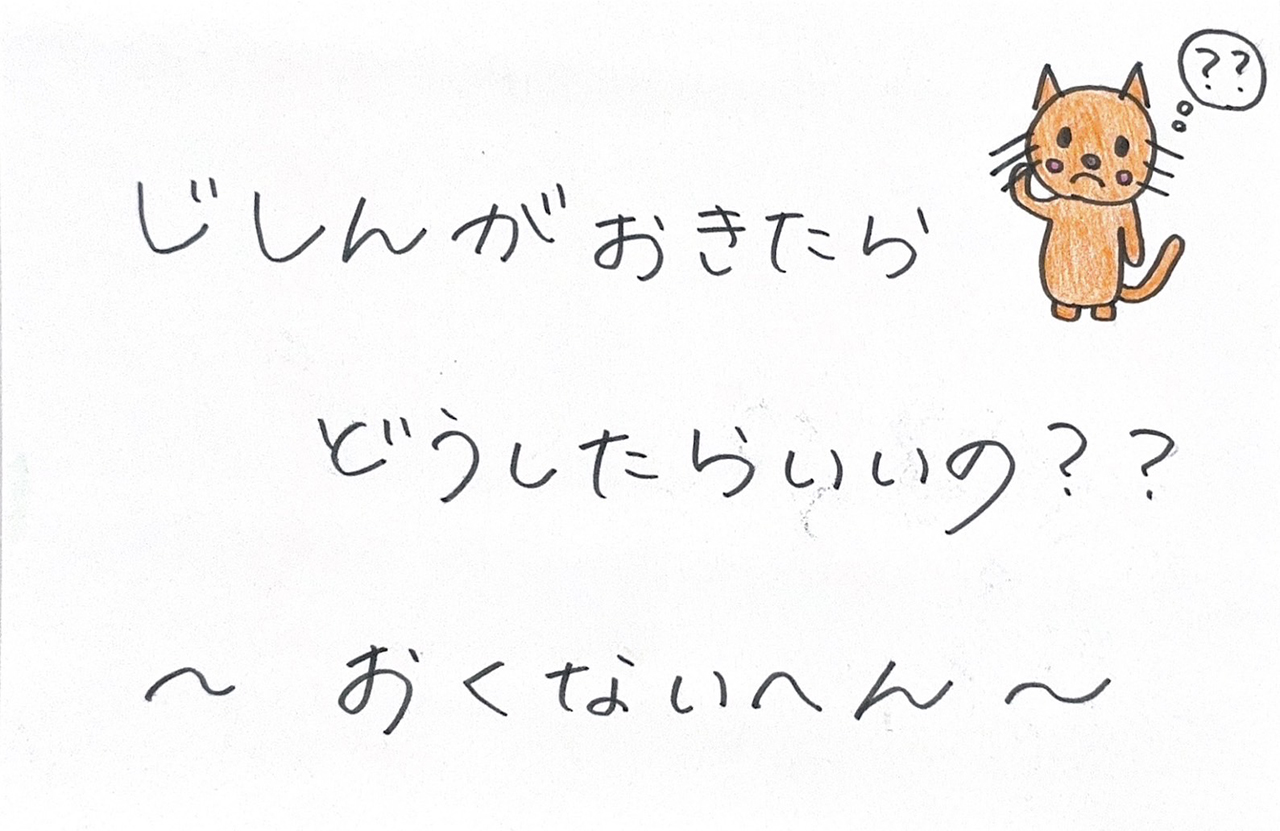 ??
じしんがおきたら
どうしたらいいの??
~ おくないへん ~